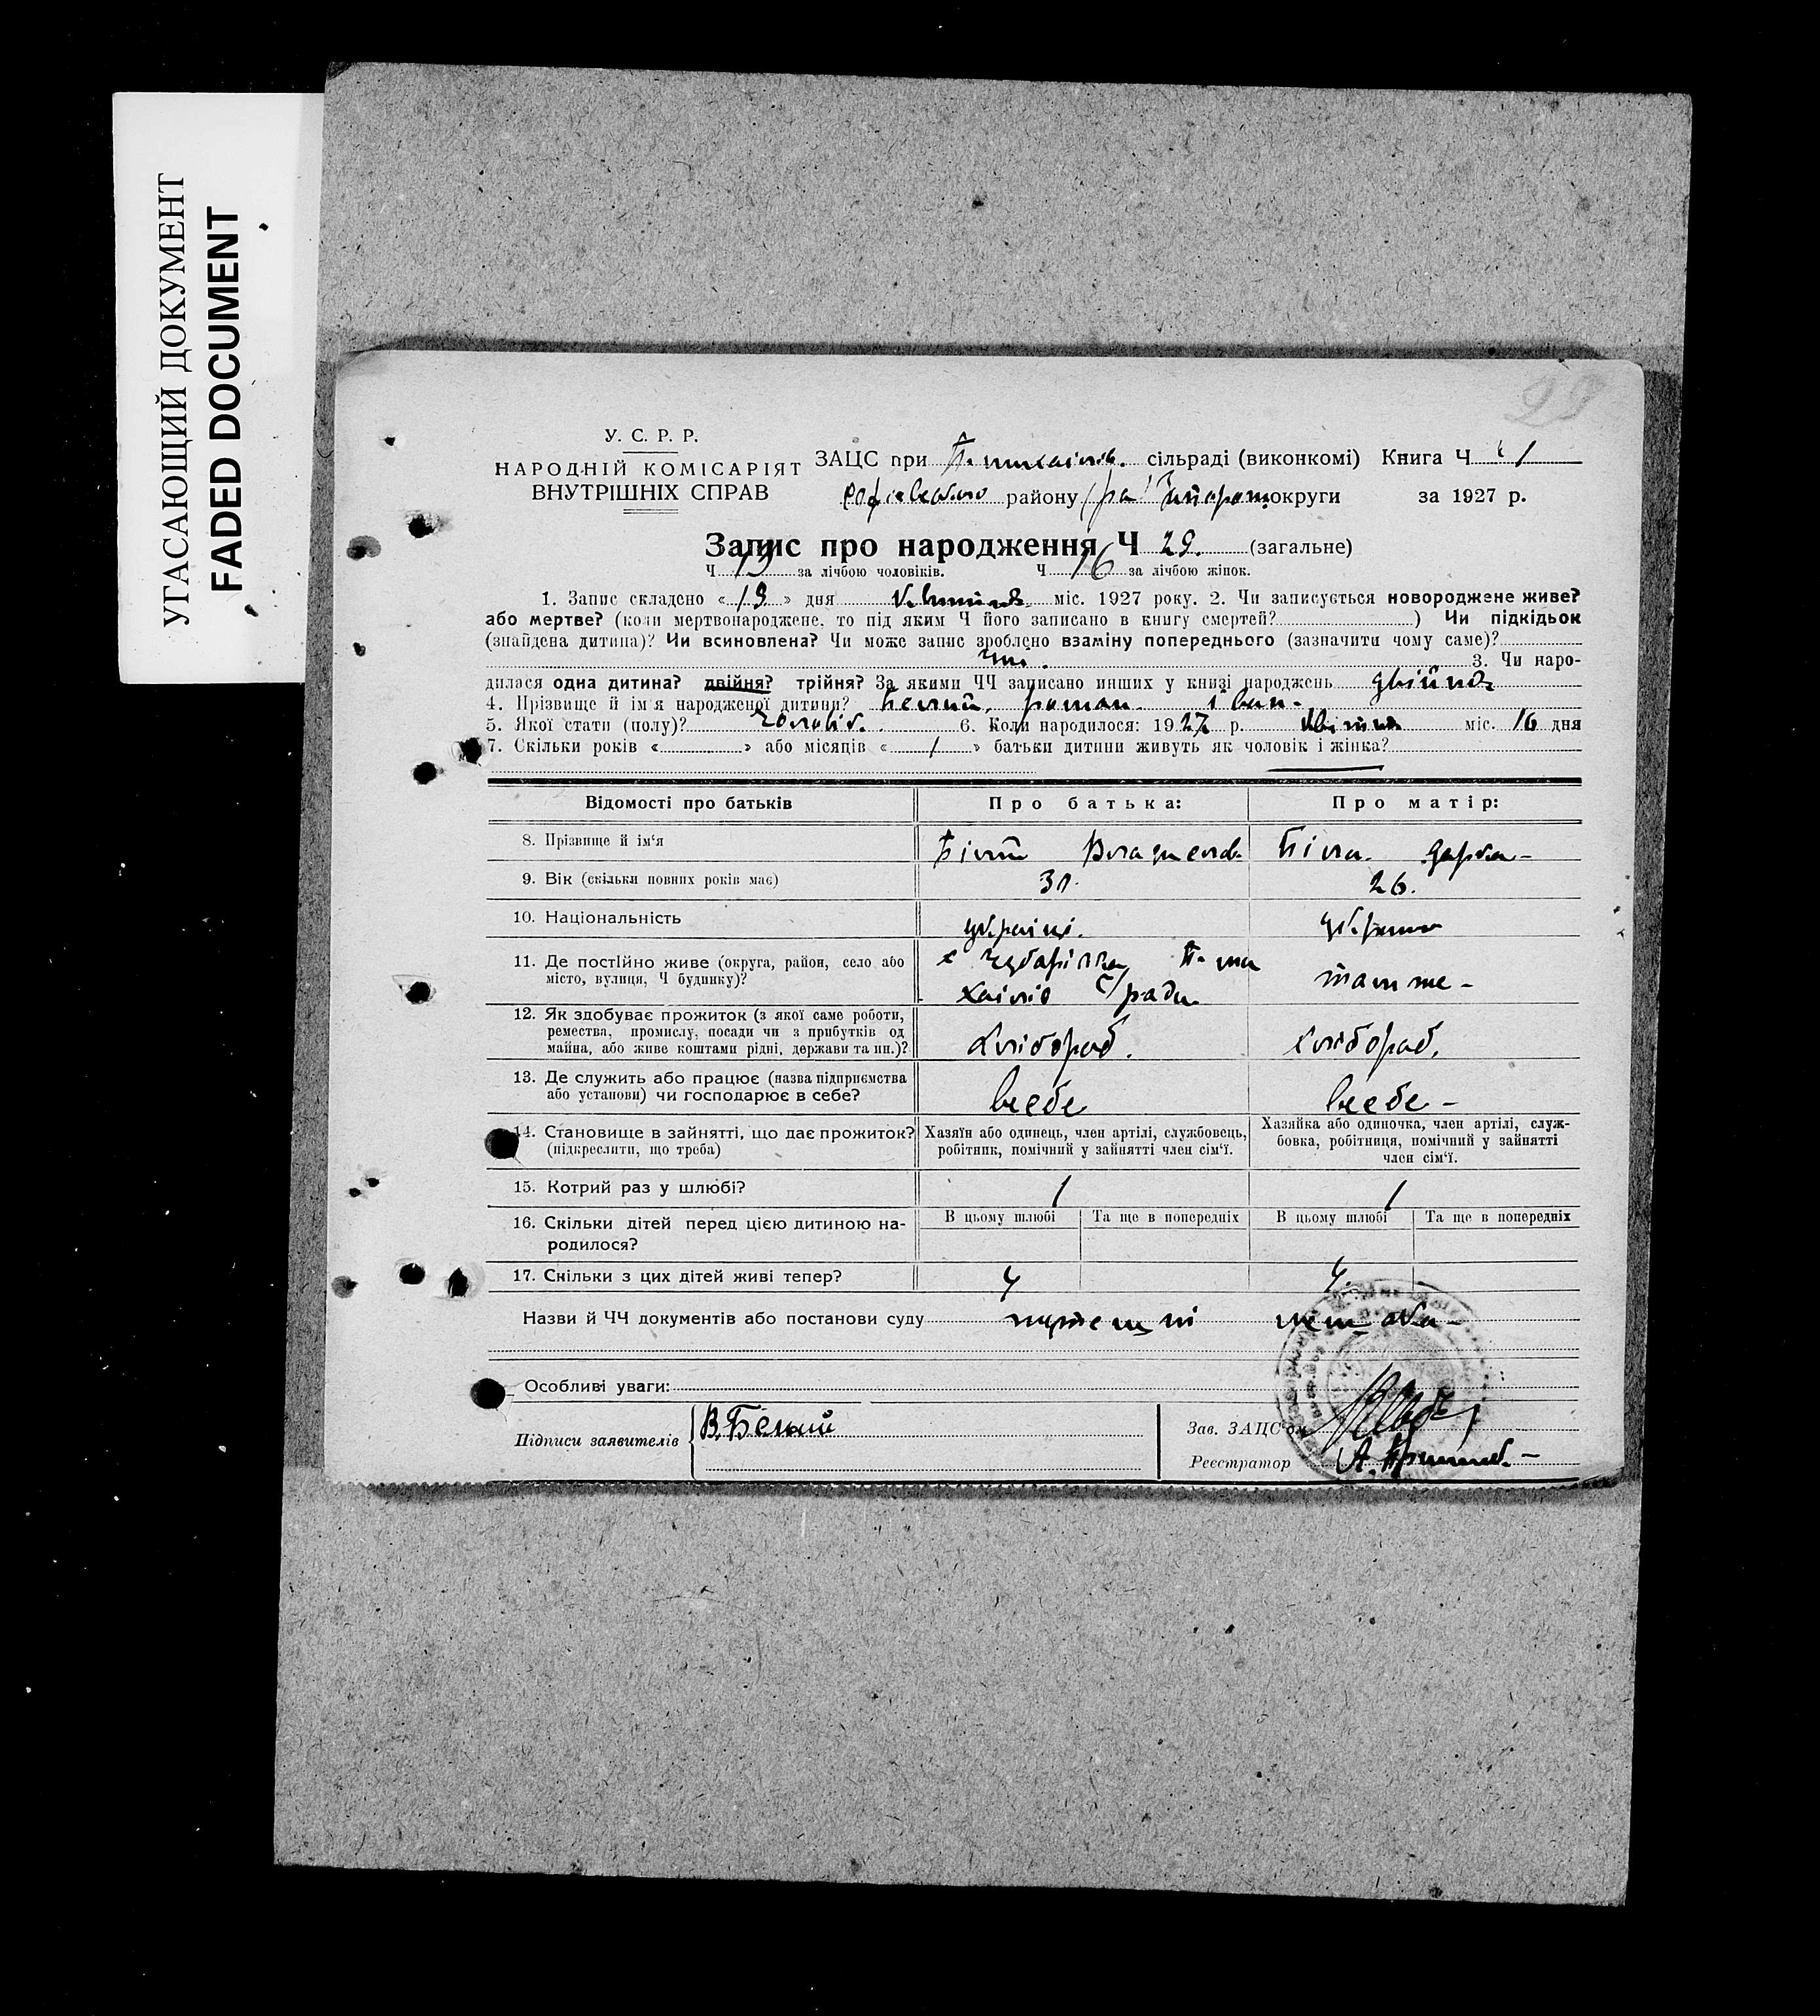 УГАСАЮЩИЙ ДОКУМЕНТ
FADED DOCUMENT
29
У. С. Р. Р.
НАРОДНІЙ КОМІСАРІЯТ
ВНУТРІШНІХ СПРАВ
ЗАЦС при сільраді (виконкомі) Книга Ч 1
району округи за 1927 р.
Запис про народження Ч 29. (загальне)
Ч 13 за лічбою чоловіків. Ч 16 за лічбою жінок.
1. Запис складено «19» дня міс. 1927 року. 2. Чи записується новороджене живе?
або мертве? (коли мертвонароджене, то під яким Ч його записано в книгу смертей? ) Чи підкідьок
(знайдена дитина)? Чи всиновлена? Чи може запис зроблено взаміну попереднього (зазначити чому саме)?
3. Чи наро-
дилася одна дитина? двійня? трійня? За якими ЧЧ записано инших у книзі народжень двійня
4. Прізвище й ім'я народженої дитини? Роман. Іван.
5. Якої стати (полу)? 6. Коли народилося: 1927 р. міс. 16 дня
7. Скільки років « » або місяців « 1 » батьки дитини живуть як чоловік і жінка?
Відомості про батьків Про батька: Про матір:
8. Прізвище й ім'я Білий Біла Дарка
9. Вік (скільки повних років має) 31. 26.
10. Національність україн. україн
11. Де постійно живе (округа, район, село або
місто, вулиця, Ч будинку)? с Чубарівка
ради там же
12. Як здобуває прожиток (з якої саме роботи,
ремества, промислу, посади чи з прибутків од
майна, або живе коштами рідні, держави та ин.)? хлібороб. хлібороб.
13. Де служить або працює (назва підприємства
або установи) чи господарює в себе? в себе в себе
14. Становище в зайнятті, що дає прожиток?
(підкреслити, що треба)
Хазяїн або одинець, член артілі, службовець,
робітник, помічний у зайнятті член сім'ї.
Хазяйка або одиночка, член артілі, служ-
бовка, робітниця, помічний у зайнятті
член сім'ї.
15. Котрий раз у шлюбі? 1 1
16. Скільки дітей перед цією дитиною на-
родилося?
В цьому шлюбі Та ще в попередніх В цьому шлюбі Та ще в попередніх
17. Скільки з цих дітей живі тепер? 4 4.
Назви й ЧЧ документів або постанови суду
Особливі уваги:
Підписи заявителів В. Белый
Зав. ЗАЦС'ом
Реєстратор А.